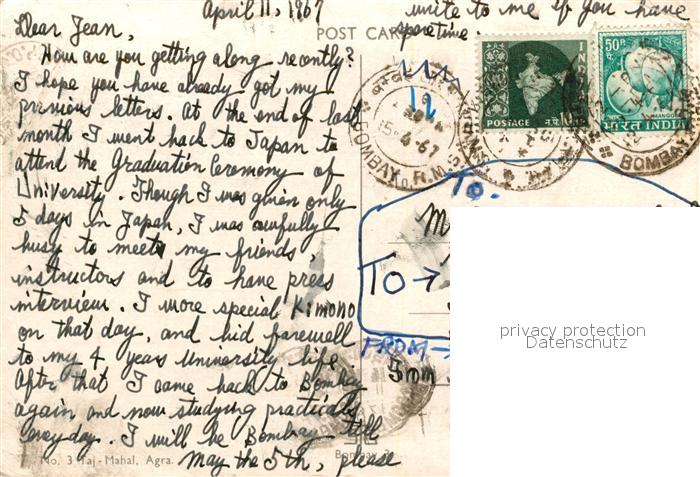 April 11, 1967
Dear Jean,
How are you getting along recently?
I hope you have already got my
previous letters. At the end of last
month I went back to Japan to
attend the Graduation Ceremony of
University. Though I was given only
5 days in Japan, I was awfully
busy to meet my friends,
instructors and to have press
interview. I wore special Kimono
on that day, and bid farewell
to my 4 years University life.
After that I came back to Bombay
again and now studying practicals
every day. I will be Bombay till
May the 5th, please
write to me if you have
spare time.
POST CARD
No. 3 Taj-Mahal, Agra.
Bombay
POSTAGE
INDIA
50P
MANGO
भारत INDIA
BOMBAY R.M.S.
4.67
BOMBAY
To.
TO →
FROM →
privacy protection
Datenschutz